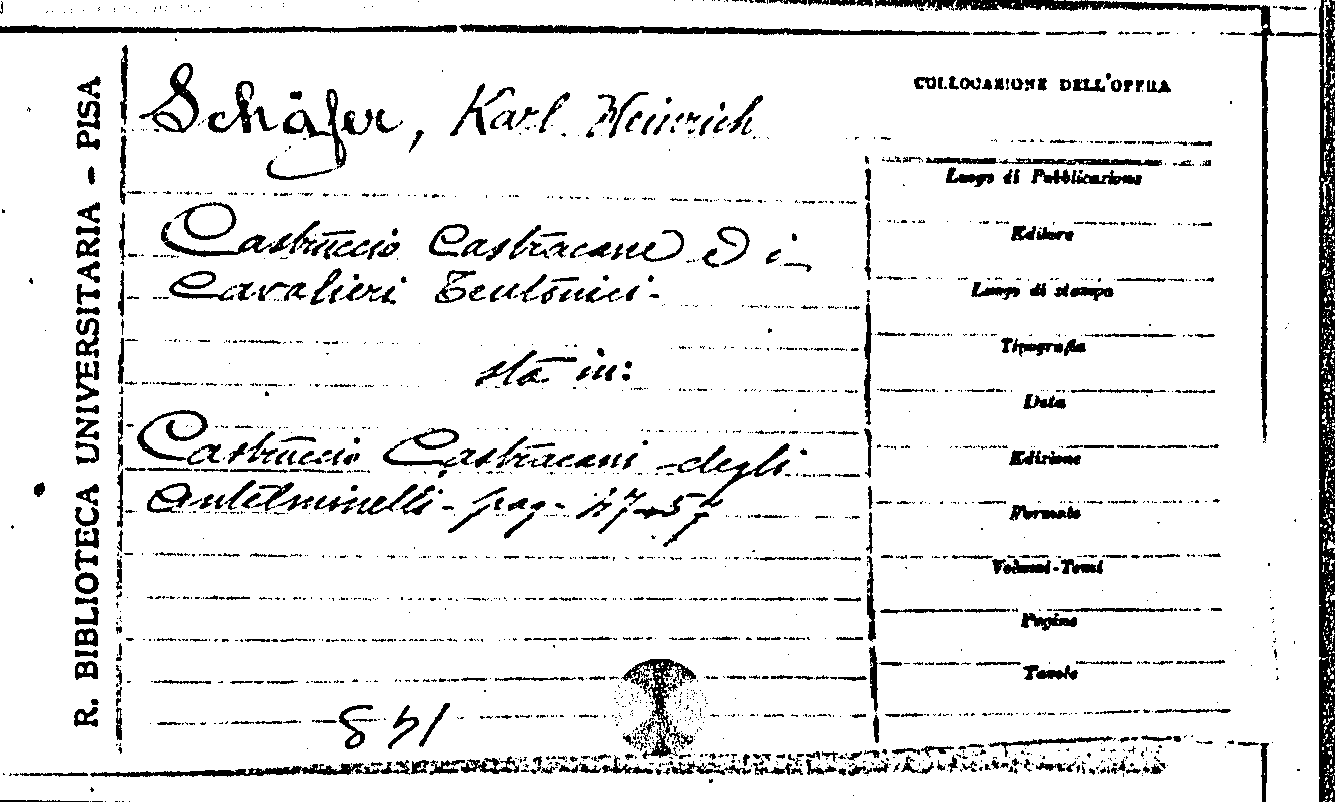 R. BIBLIOTECA UNIVERSITARIA - PISA
COLLOCAZIONE DELL'OPERA
Schäfer, Karl Heinrich
Castruccio Castracane e i
Cavalieri Teutonici -
sta in:
Castruccio Castracani degli
Antelminelli - pag. 47-57
Luogo di Pubblicazione
Editore
Luogo di stampa
Tipografia
Data
Edizione
Formato
Volumi-Tomi
Pagine
Tavole